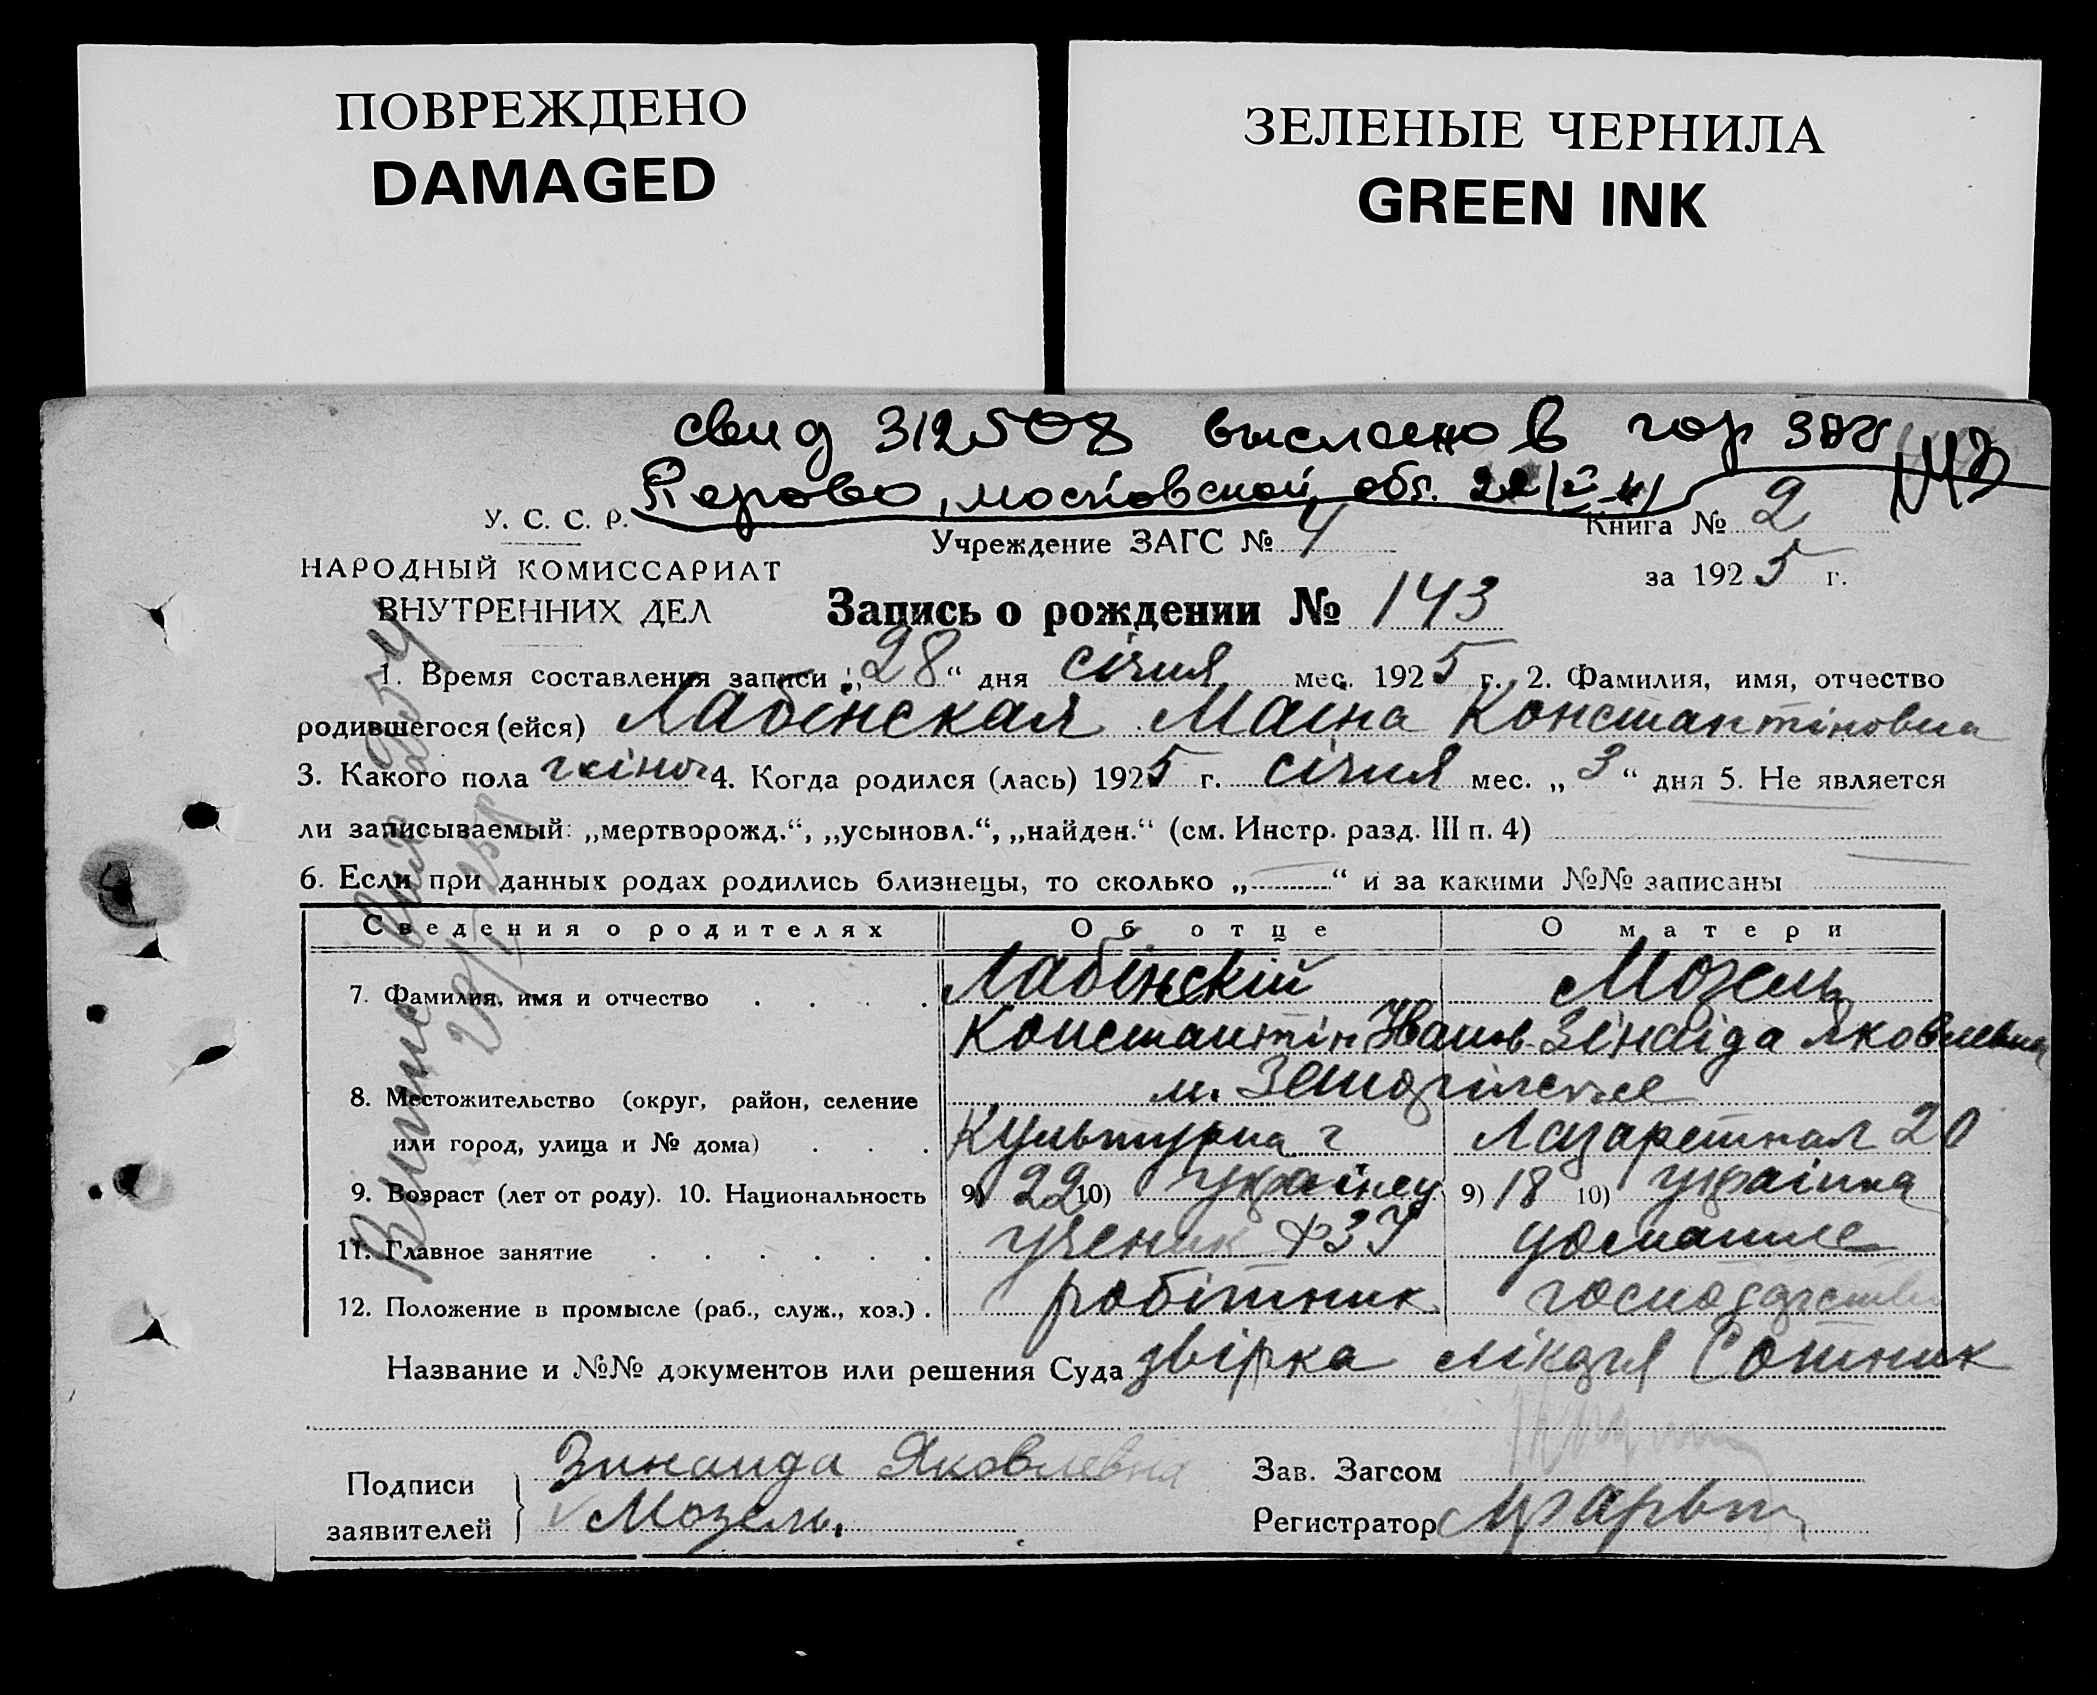 ПОВРЕЖДЕНО
DAMAGED
ЗЕЛЕНЫЕ ЧЕРНИЛА
GREEN INK
свид 312508 выслано в гор
Перово, московской обл.
У. С. С. Р.
Учреждение ЗАГС № 4
Книга № 2
НАРОДНЫЙ КОМИССАРИАТ
ВНУТРЕННИХ ДЕЛ
за 1925 г.
Запись о рождении № 143
1. Время составления записи „28“ дня січня мес. 1925 г. 2. Фамилия, имя, отчество
родившегося (ейся) Лабінская Маіна Константіновна
3. Какого пола жіноч 4. Когда родился (лась) 1925 г. січня мес. „3“ дня 5. Не является
ли записываемый: „мертворожд.“, „усыновл.“, „найден.“ (см. Инстр. разд. III п. 4)
6. Если при данных родах родились близнецы, то сколько „ “ и за какими №№ записаны
Сведения о родителях Об отце О матери
7. Фамилия, имя и отчество Лабінскій Мозель
Константін Іванов. Зінаіда Яковлевна
8. Местожительство (округ, район, селение
или город, улица и № дома) Культурна 2 Лазаретная 20
9. Возраст (лет от роду). 10. Национальность 9) 22 10) українец 9) 18 10) українка
11. Главное занятие ученик ФЗУ домашнє
12. Положение в промысле (раб., служ., хоз.) робітник господарство
Название и №№ документов или решения Суда звірка Сотник
Подписи
заявителей
Зинаида Яковлевна
Мозель.
Зав. Загсом
Регистратор